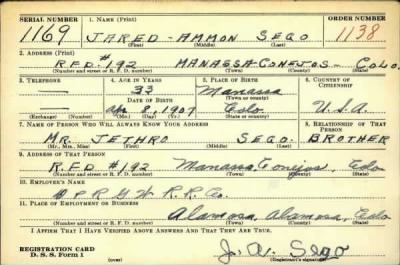 SERIAL NUMBER 1. Name (Print) ORDER NUMBER
1169 JARED - AMMON SEGO 1138
(First) (Middle) (Last)
2. Address (Print)
R.F.D. #192 MANASSA CONEJOS - COLO.
(Number and street or R. F. D. number) (Town) (County) (State)
3. Telephone 4. Age in Years 5. Place of Birth 6. Country of Citizenship
— 33 Manassa
Date of Birth (Town or county)
— Apr 8, 1907 Colo U.S.A.
(Exchange) (Number) (Mo.) (Day) (Yr.) (State or country)
7. Name of Person Who Will Always Know Your Address 8. Relationship of That Person
Mr. JETHRO SEGO BROTHER
(Mr., Mrs., Miss) (First) (Middle) (Last)
9. Address of That Person
R.F.D #192 Manassa Conejos, Colo
(Number and street or R. F. D. number) (Town) (County) (State)
10. Employer's Name
D & R G W R.R. Co.
11. Place of Employment or Business
Alamosa, Alamosa, Colo
(Number and street or R. F. D. number) (Town) (County) (State)
I Affirm That I Have Verified Above Answers and That They Are True.
REGISTRATION CARD
D. S. S. Form 1 J. A. Sego
(Registrant's signature)